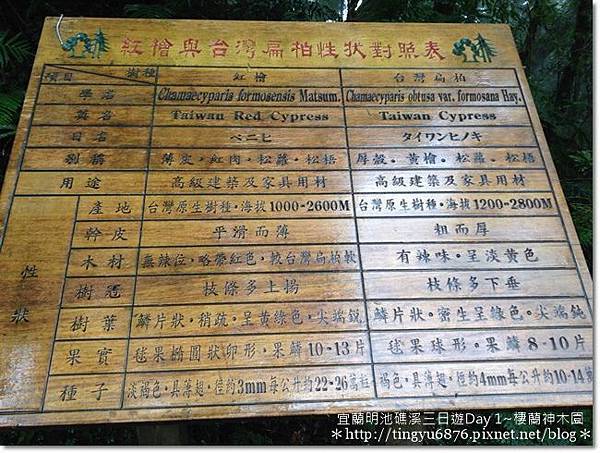 紅檜與台灣扁柏性狀對照表
項目 樹種 紅檜 台灣扁柏
學名 Chamaecyparis formosensis Matsum. Chamaecyparis obtusa var. formosana Hay.
英名 Taiwan Red Cypress Taiwan Cypress
日名 ベニヒ タイワンヒノキ
別稱 薄皮，紅肉，松蘿，松梧 厚殼。黃檜。松蘿。松梧
用途 高級建築及家具用材 高級建築及家具用材
性狀
產地 台灣原生樹種，海拔1000-2600M 台灣原生樹種，海拔1200-2800M
幹皮 平滑而薄 粗而厚
木材 無辣位，略帶紅色，較台灣扁柏軟 有辣味。呈淡黃色
樹冠 枝條多上揚 枝條多下垂
樹葉 鱗片狀，稍疏，呈黃綠色，尖端銳 鱗片狀。密生呈綠色。尖端鈍
果實 毬果橢圓狀卵形，果鱗10-13片 毬果球形。果鱗8-10片
種子 淡褐色，具薄翅，徑約3mm每公升約22-26萬粒 褐色，具薄翅，徑約4mm每公升約10-14萬
宜蘭明池礁溪三日遊Day 1~棲蘭神木園
＊http://tingyu6876.pixnet.net/blog＊